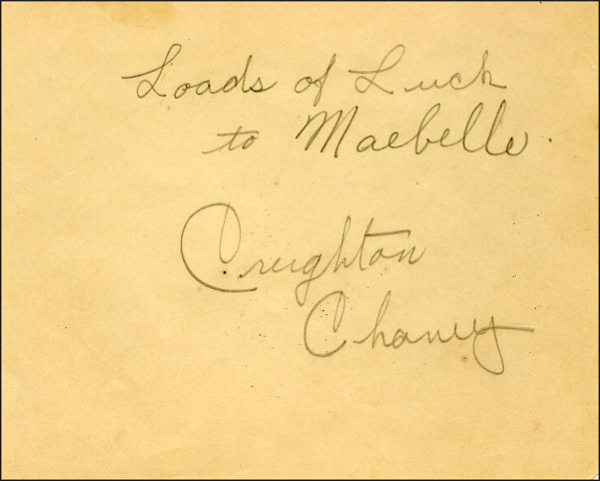 Loads of Luck
to Maebelle.
Creighton
Chaney